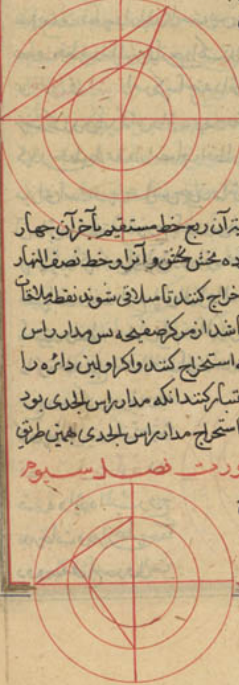 آن ربع خط مستقیم بآخر آن چهار
ده بخش بخش و آنرا و خط نصف النهار
خراج کنند تا متلاقی شوند نقطه ملاقات
باشد از مرکز صفیحه پس مدار راس
استخراج کنند و اگر اولین دائره را
کنند انکه مدار راس الجدی بود
استخراج مدار راس الجدی همین طریق
ورت فصل سیوم